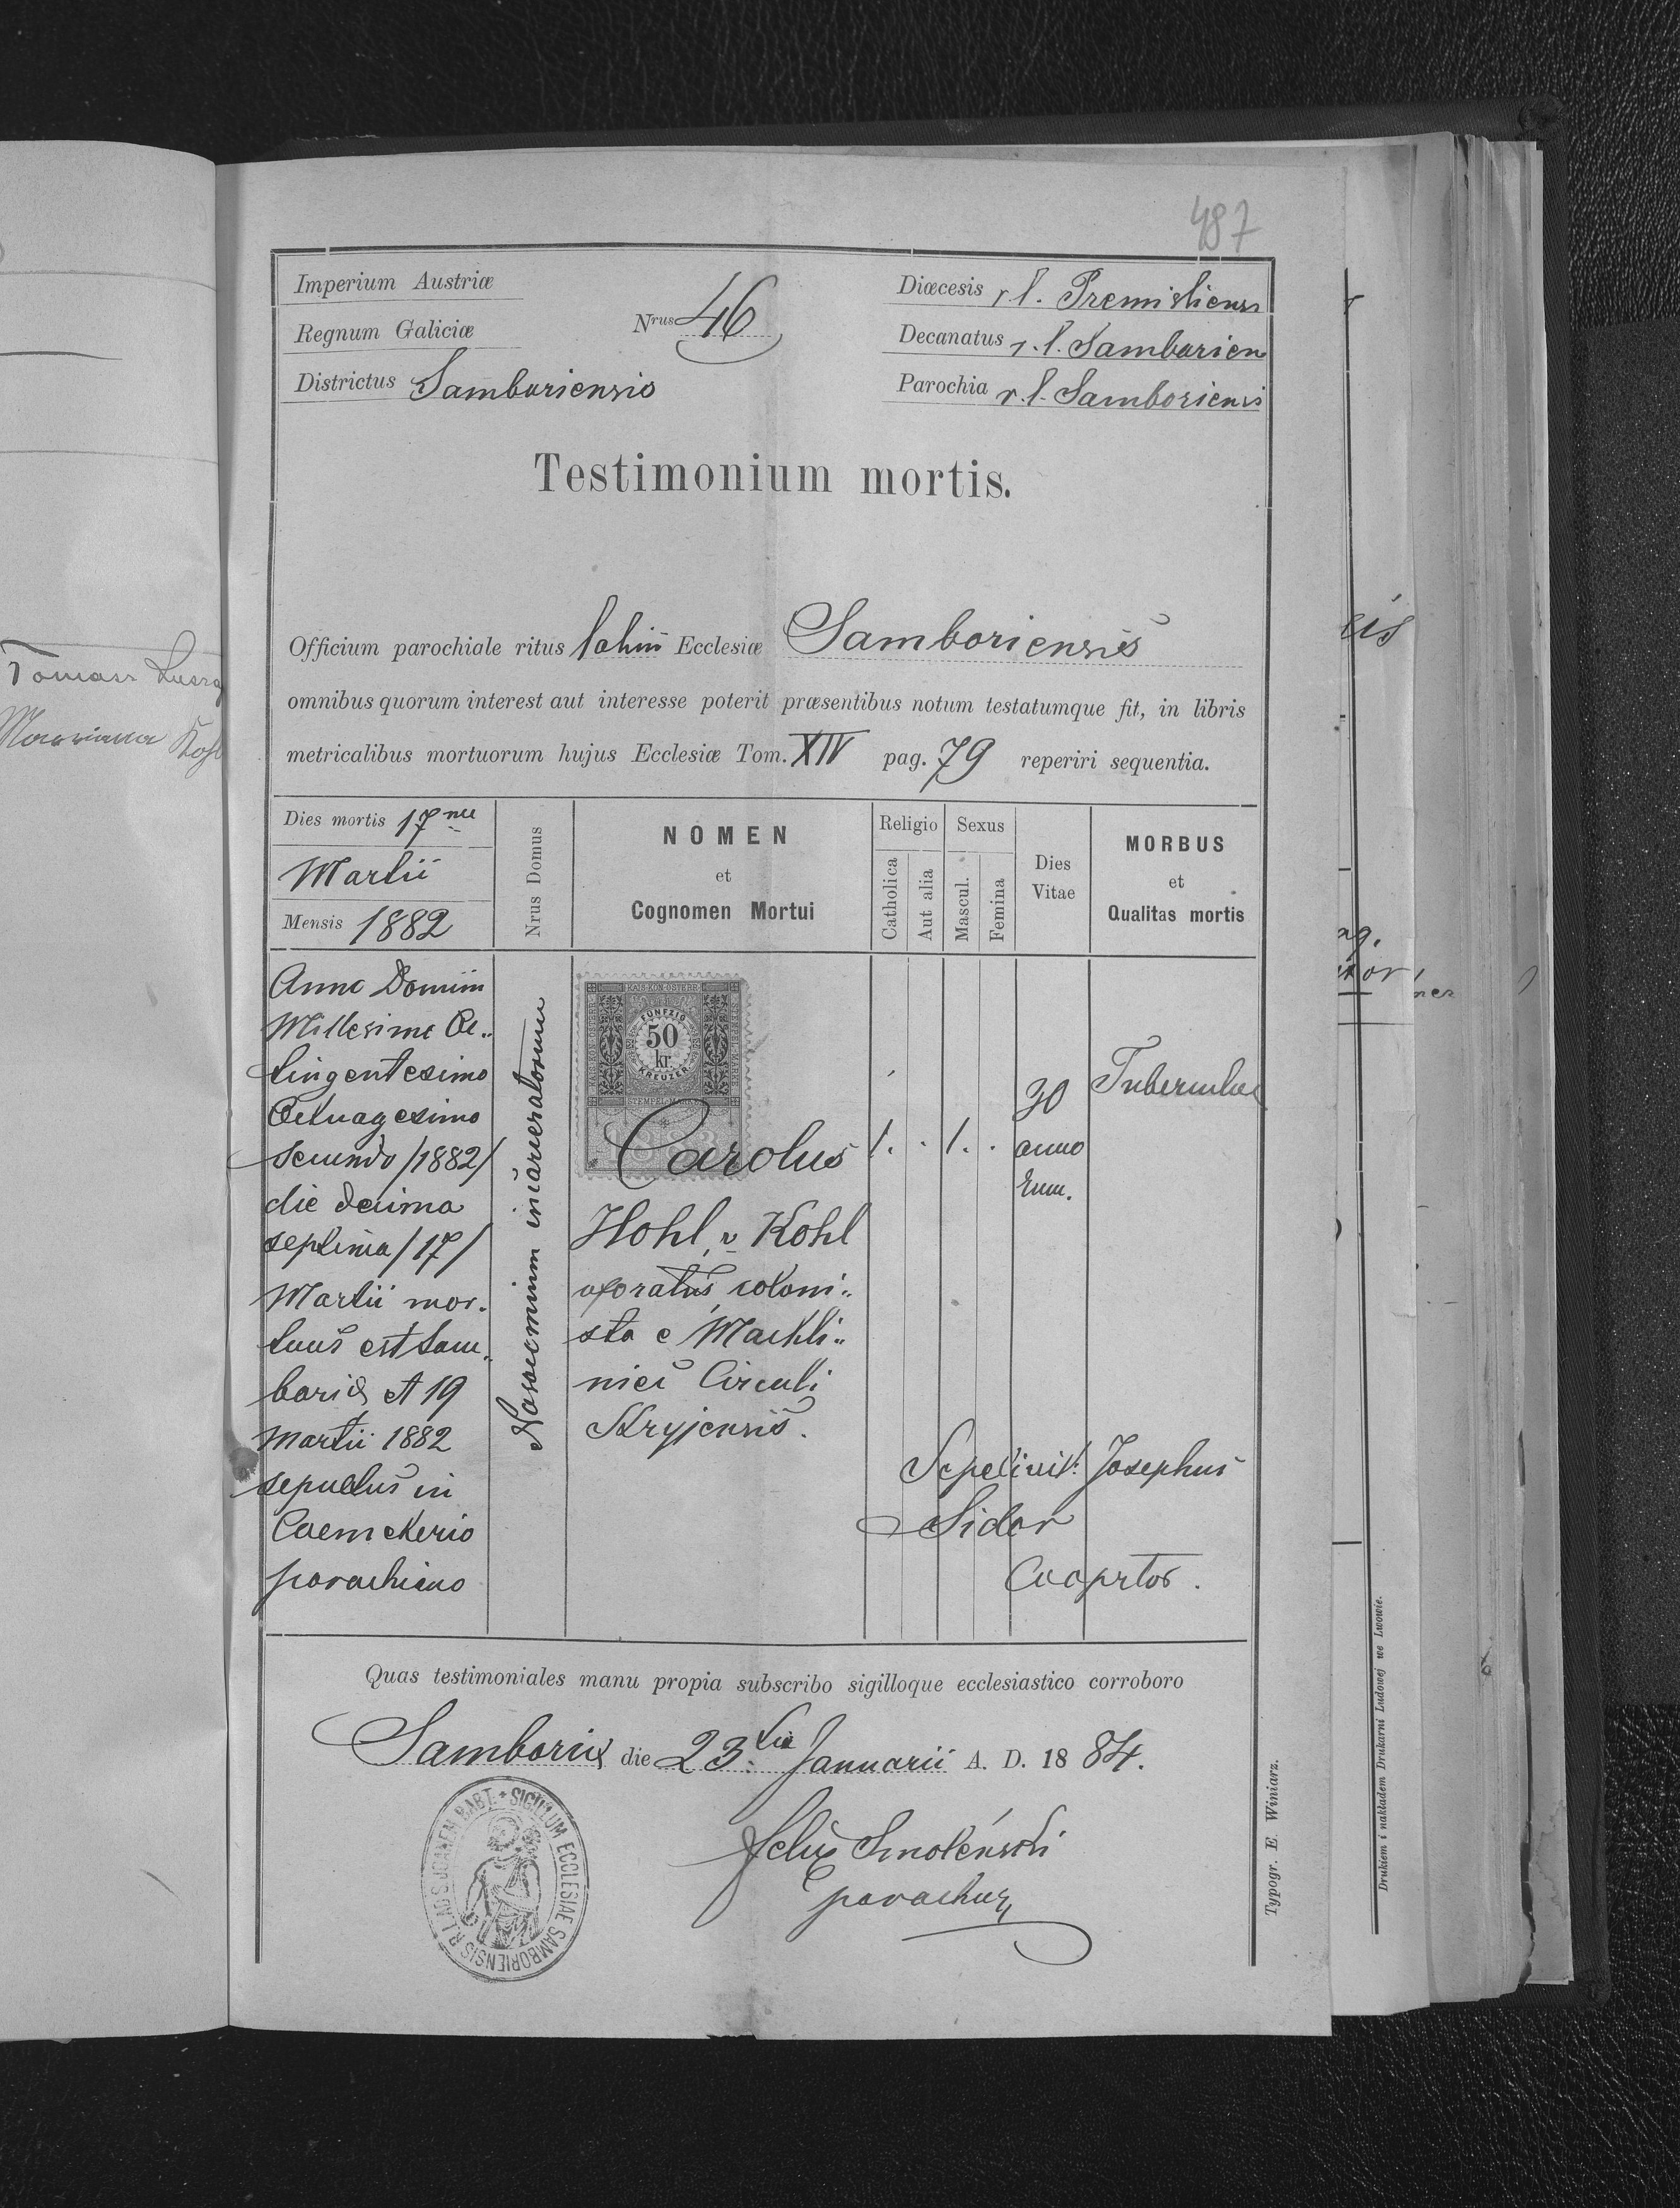 487
Imperium Austriæ
Regnum Galiciæ
Districtus Samboriensis
Nrus 46
Diœcesis r l. Premisliens
Decanatus r. l. Samborien
Parochia r. l. Samboriensi
Testimonium mortis.
Officium parochiale ritus latini Ecclesiæ Samboriensis
omnibus quorum interest aut interesse poterit præsentibus notum testatumque fit, in libris
metricalibus mortuorum hujus Ecclesiæ Tom. XIV pag. 79 reperiri sequentia.
Dies mortis 17 mu
Martii
Mensis 1882
Nrus Domus
NOMEN
et
Cognomen Mortui
Religio
Catholica
Aut alia
Sexus
Mascul.
Femina
Dies
Vitae
MORBUS
et
Qualitas mortis
Anno Domini
Millesimo Oc„
tingentesimo
Octuagesimo
secundo /1882/
die decima
septima /17/
Martii mor.
tuus est Sam.
boriæ et 19
Martii 1882
sepultus in
Coemeterio
parochiano
Nosocomium incarceratorum
KAIS. KÖN. ÖSTERR.
FÜNFZIG
50
kr.
KREUZER
STEMPEL-MARKE
1883
Carolus
Hohl, v Kohl
uxoratus, coloni„
sta e Machli„
niec Circuli
Stryjensis.
1. . 1. .
30
anno
rum.
Tubercul
Sepelivit: Josephus
Sidor
Cooprtor.
Quas testimoniales manu propia subscribo sigilloque ecclesiastico corroboro
Samboriæ die 23. tia Januarii A. D. 18 84.
Felix Smoleński
parochus
SIGILLUM ECCLESIAE SAMBORIENSIS R. L. AD S. JOANEM BABT.
Typogr. E. Winiarz.
Tomasz
Maryanna
eis
Drukiem i nakładem Drukarni Ludowej we Lwowie.